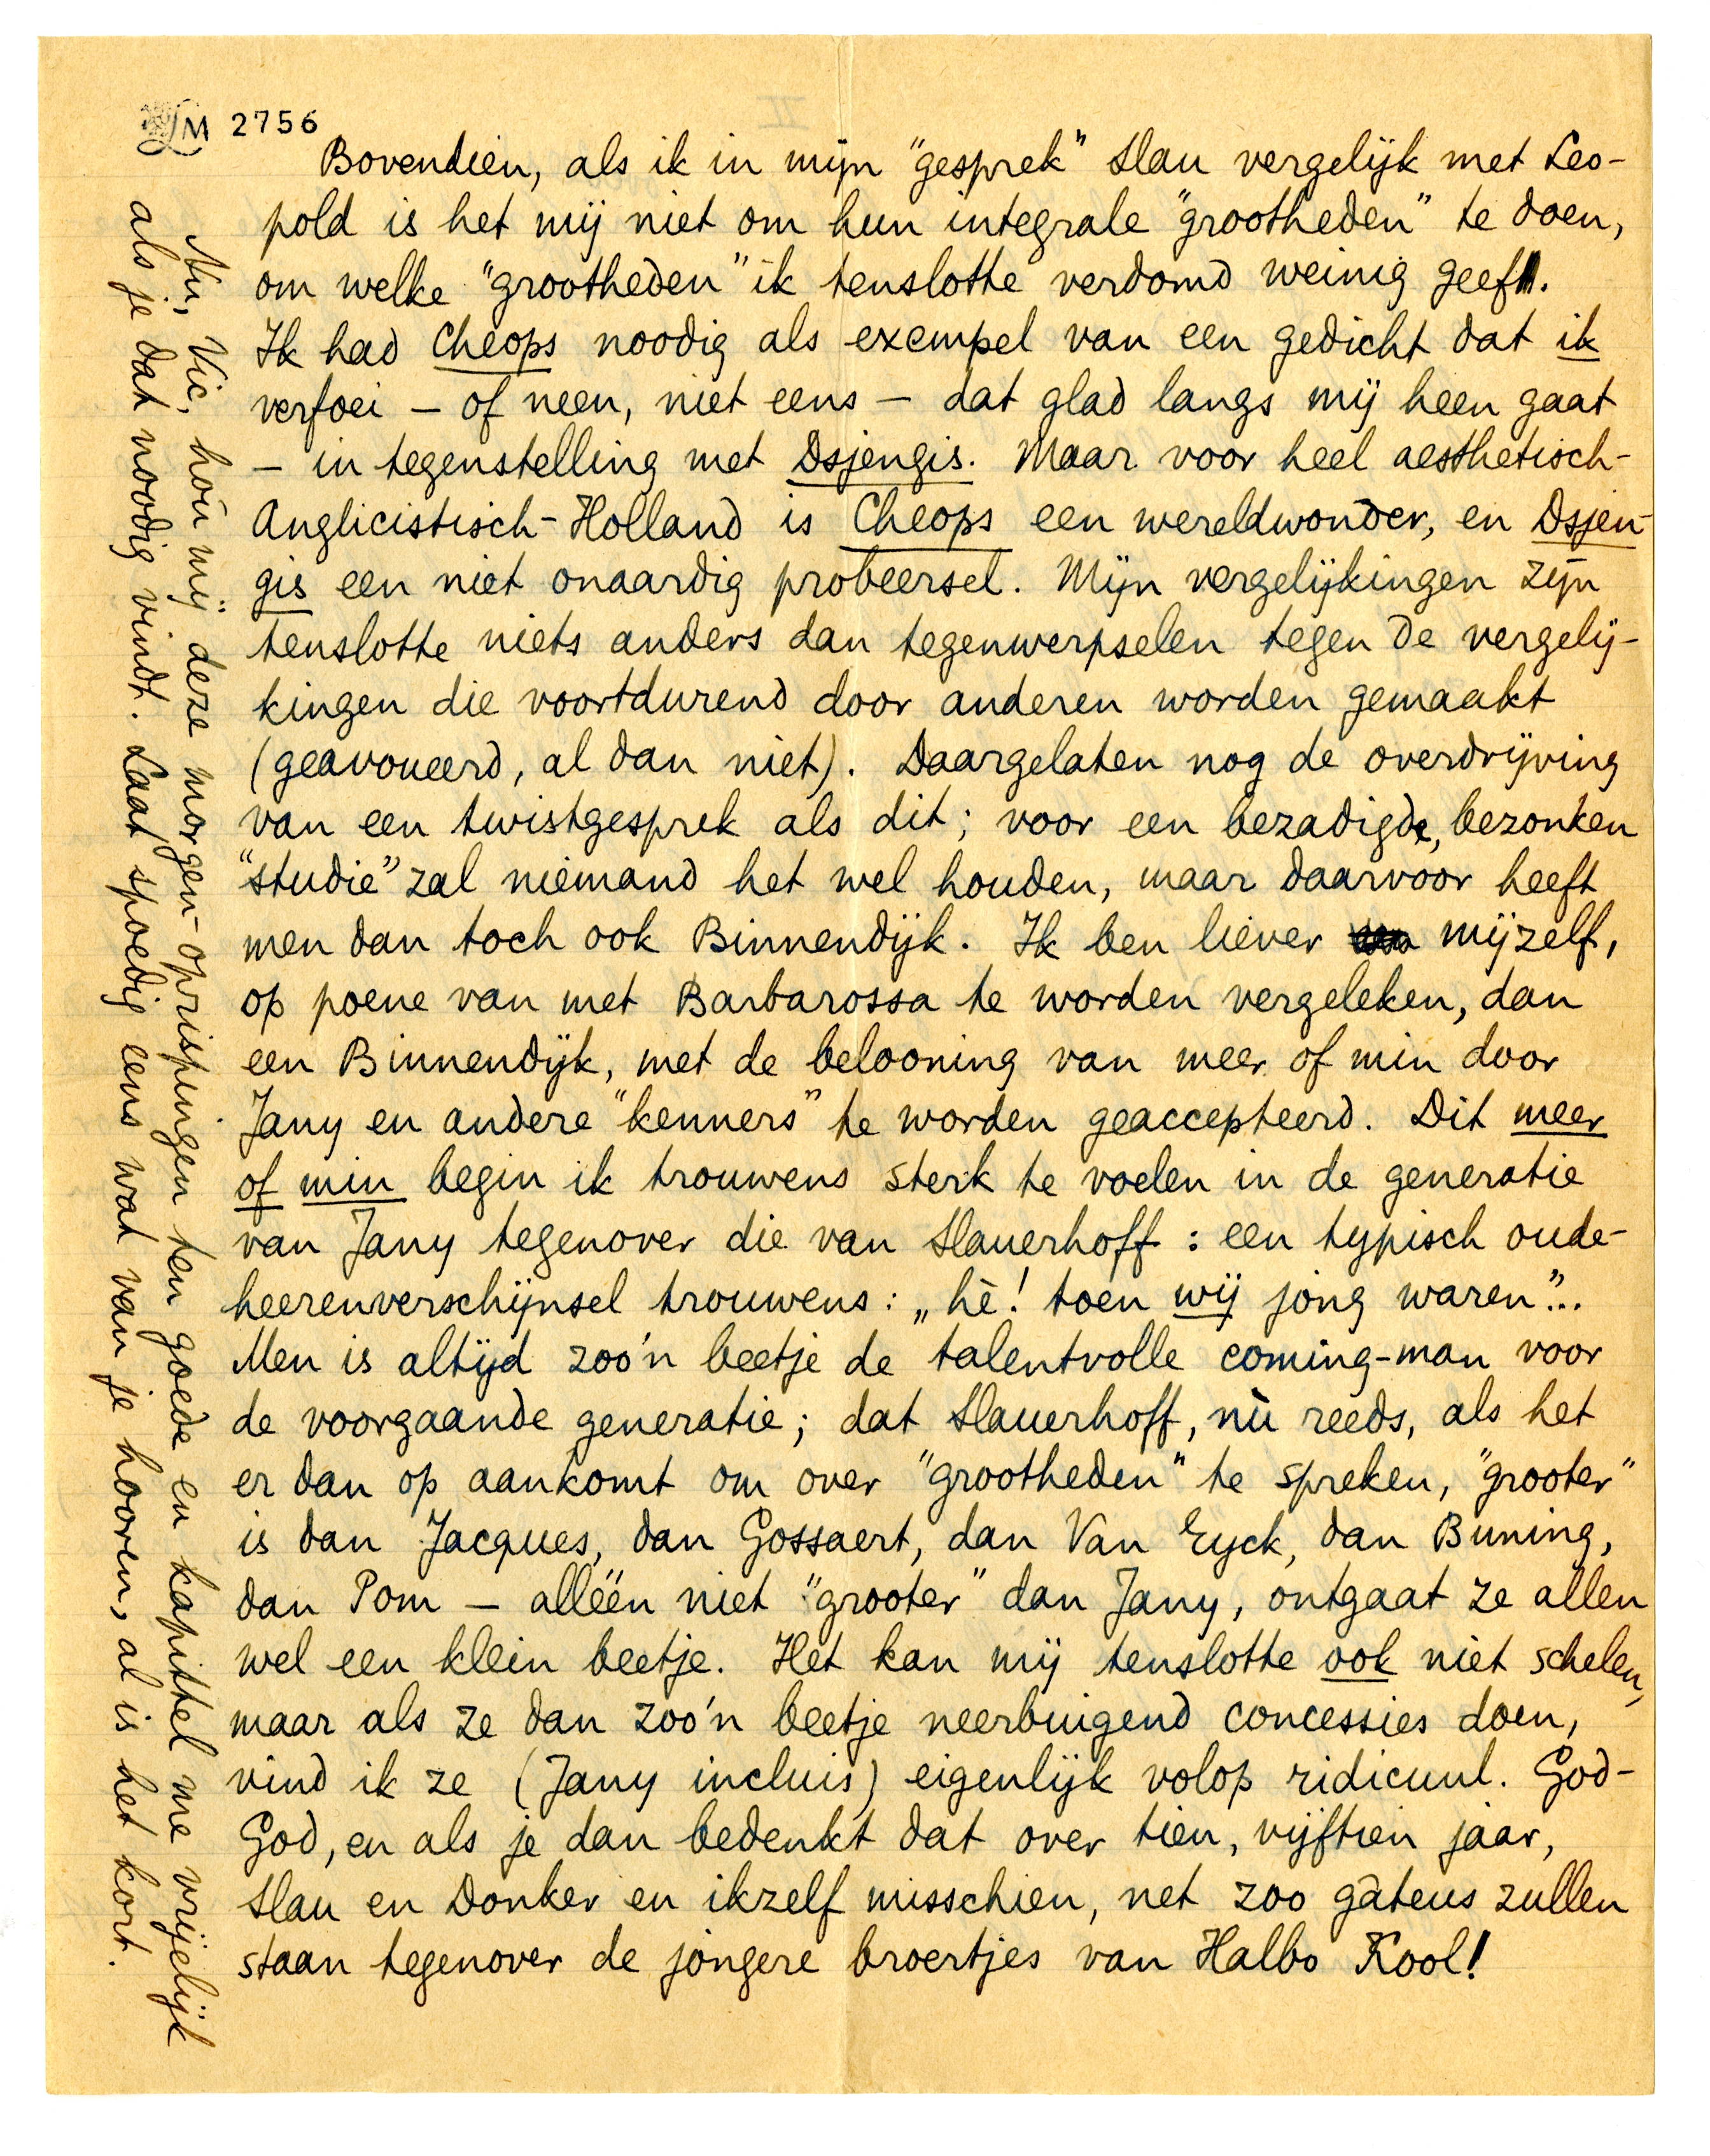 LM 2756
Bovendien, als ik in mijn "gesprek" Slau vergelijk met Leo-
pold is het mij niet om hun integrale "grootheden" te doen,
om welke "grootheden" ik tenslotte verdomd weinig geef.
Ik had Cheops noodig als exempel van een gedicht dat ik
verfoei – of neen, niet eens – dat glad langs mij heen gaat
– in tegenstelling met Dsjengis. Maar voor heel aesthetisch-
Anglicistisch-Holland is Cheops een wereldwonder, en Dsjen-
gis een niet onaardig probeersel. Mijn vergelijkingen zijn
tenslotte niets anders dan tegenwerpselen tegen de vergelij-
kingen die voortdurend door anderen worden gemaakt
(geavoueerd, al dan niet). Daargelaten nog de overdrijving
van een twistgesprek als dit; voor een bezadigde, bezonken
"studie" zal niemand het wel houden, maar daarvoor heeft
men dan toch ook Binnendijk. Ik ben liever mijzelf,
op poene van met Barbarossa te worden vergeleken, dan
een Binnendijk, met de belooning van meer of min door
Jany en andere "kenners" te worden geaccepteerd. Dit meer
of min begin ik trouwens sterk te voelen in de generatie
van Jany tegenover die van Slauerhoff : een typisch oude-
heerenverschijnsel trouwens: „hè! toen wij jong waren"...
Men is altijd zoo'n beetje de talentvolle coming-man voor
de voorgaande generatie; dat Slauerhoff, nù reeds, als het
er dan op aankomt om over "grootheden" te spreken, "grooter"
is dan Jacques, dan Gossaert, dan Van Eyck, dan Buning,
dan Pom – alléén niet "grooter" dan Jany, ontgaat ze allen
wel een klein beetje. Het kan mij tenslotte ook niet schelen,
maar als ze dan zoo'n beetje neerbuigend concessies doen,
vind ik ze (Jany incluis) eigenlijk volop ridicuul. God-
God, en als je dan bedenkt dat over tien, vijftien jaar,
Slau en Donker en ikzelf misschien, net zoo gâteus zullen
staan tegenover de jongere broertjes van Halbo Kool!
Nu, Vic, hou mij deze morgen-oprispingen ten goede en kapittel me vrijelijk
als je dat noodig vindt. Laat spoedig eens wat van je hooren, al is het kort.